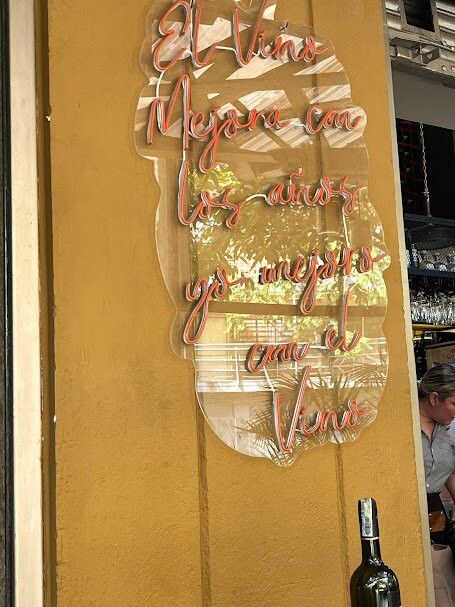 El Vino
Mejora con
los años
yo mejoro
con el
Vino